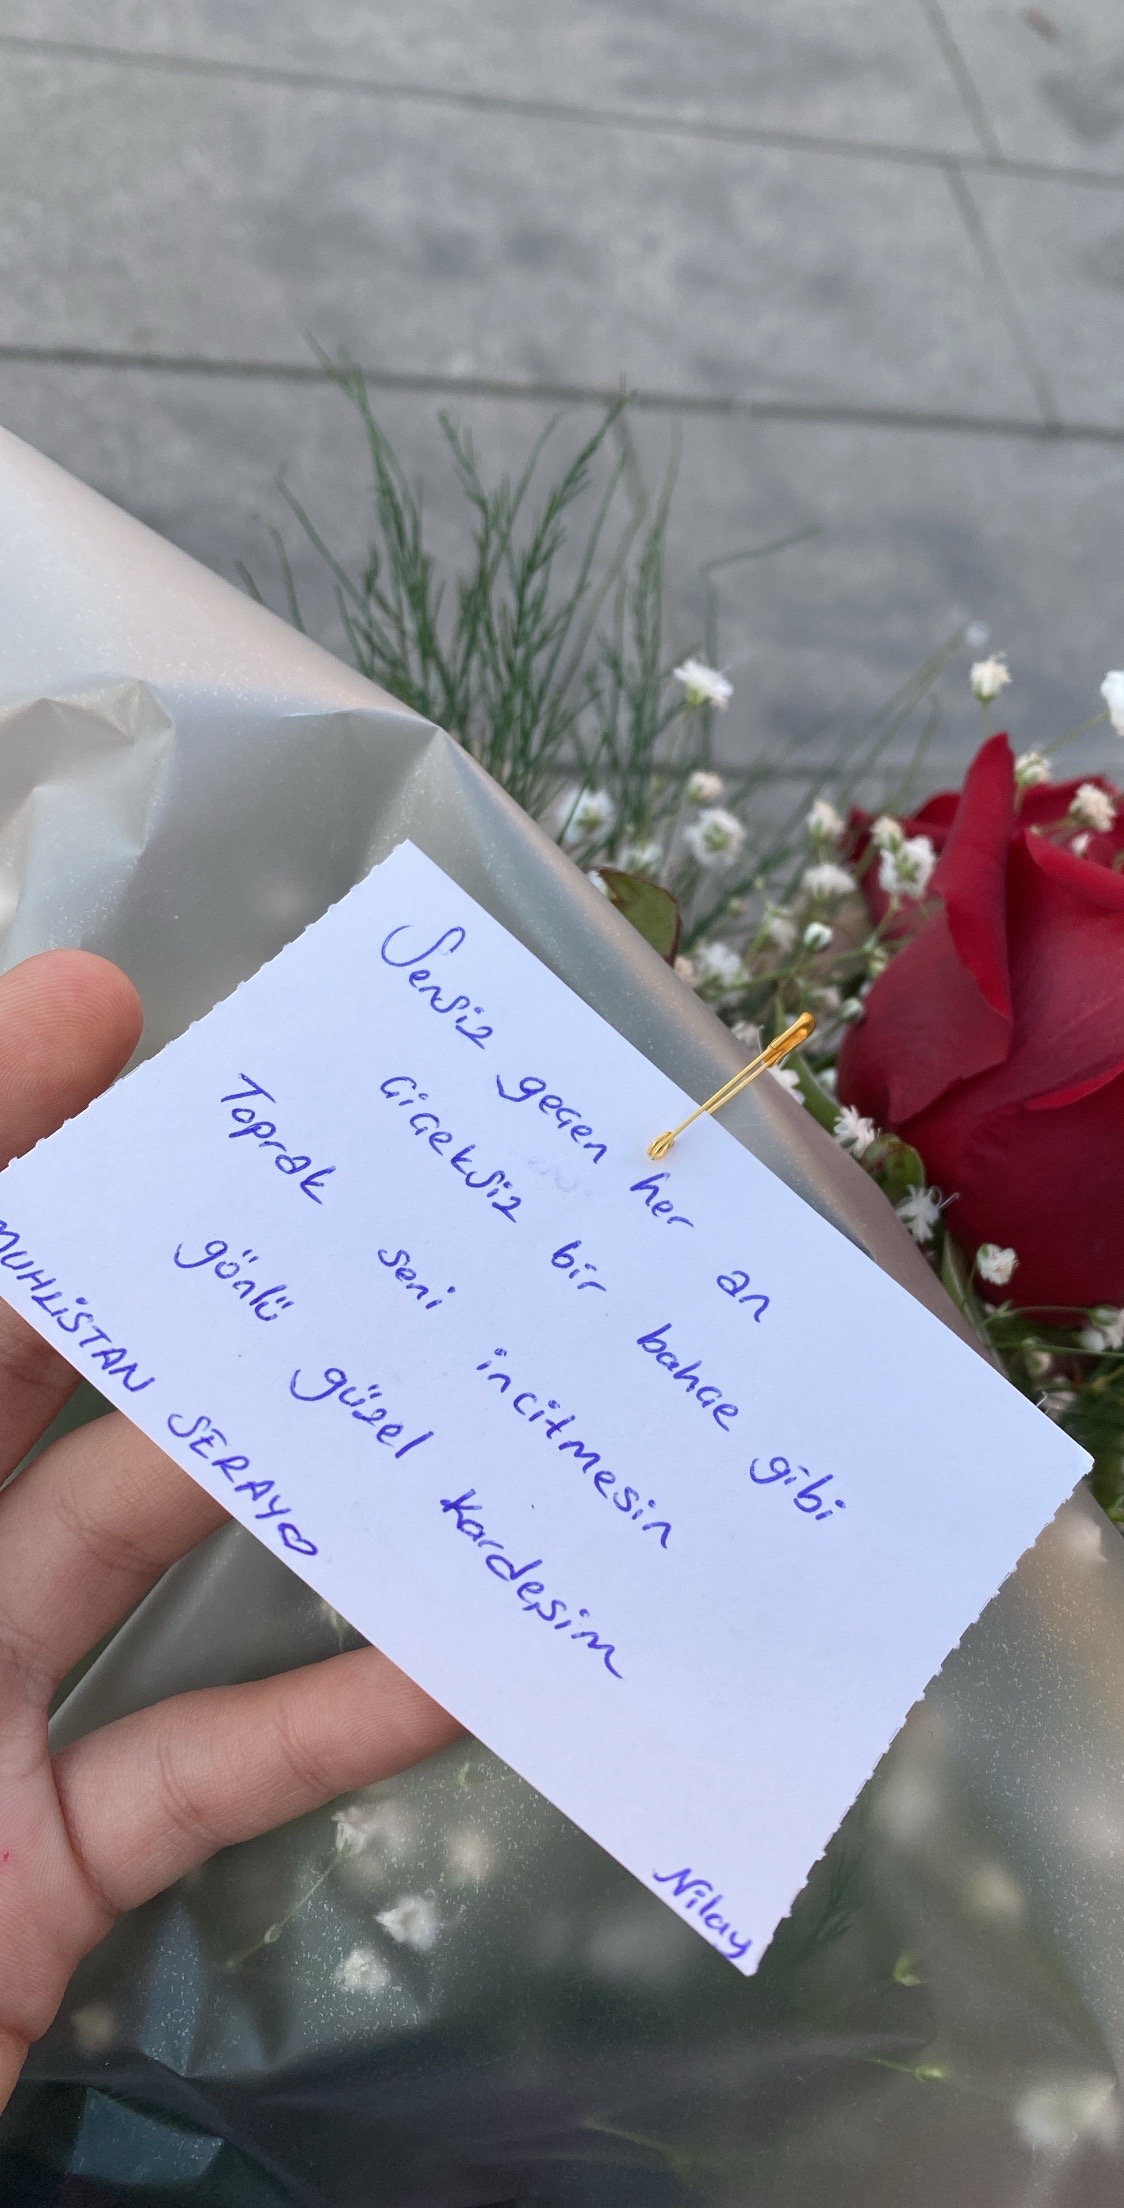 Sensiz geçen her an
çiçeksiz bir bahçe gibi
Toprak seni incitmesin
gönlü güzel kardeşim
MUHLİSTAN SERAY♡
Nilay